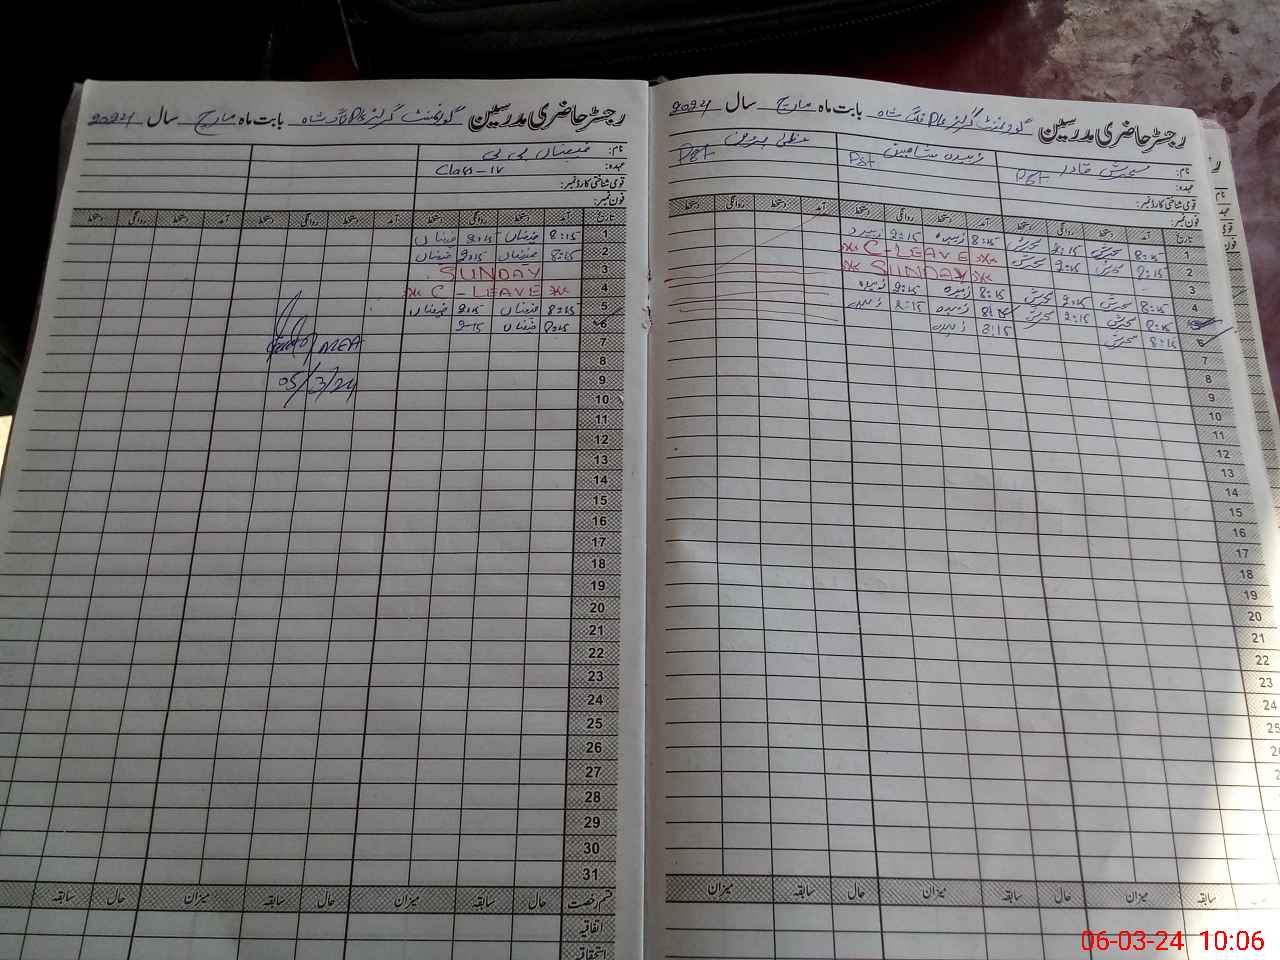 رجسٹر حاضری مدرسین گورنمنٹ گرلز P/s بابت ماہ مارچ سال 2024
نام: سحرش قادر
زبیدہ شاہین
عظمیٰ پروین
عہدہ: Pst Pst Pst
قومی شناختی کارڈ نمبر:
فون نمبر:
تاریخ آمد دستخط روانگی دستخط آمد دستخط روانگی دستخط آمد دستخط روانگی دستخط
1 8:15 سحرش 2:15 سحرش 8:15 زبیدہ 2:15 زبیدہ
2 8:15 سحرش 2:15 سحرش C-LEAVE
3 SUNDAY
4 8:15 سحرش 2:15 سحرش 8:15 زبیدہ 2:15 زبیدہ
5 8:15 سحرش 2:15 سحرش 8:15 زبیدہ 2:15 زبیدہ
6 8:15 سحرش 8:15 زبیدہ
7
8
9
10
11
12
13
14
15
16
17
18
19
20
21
22
23
24
25
میزان حال سابقہ میزان حال سابقہ میزان
رجسٹر حاضری مدرسین گورنمنٹ گرلز P/s بابت ماہ مارچ سال 2024
نام: فیضاں بی بی
عہدہ: Class-IV
قومی شناختی کارڈ نمبر:
فون نمبر:
تاریخ آمد دستخط روانگی دستخط آمد دستخط روانگی دستخط آمد دستخط روانگی دستخط
1 8:15 فیضاں 2:15 فیضاں
2 8:15 فیضاں 2:15 فیضاں
3 SUNDAY
4 C-LEAVE
5 8:15 فیضاں 2:15 فیضاں
6 8:15 فیضاں 2:15
7
8
9
10
11
12
13
14
15
16
17
18
19
20
21
22
23
24
25
26
27
28
29
30
31
05/3/24
قسم رخصت حال سابقہ میزان حال سابقہ میزان حال سابقہ
اتفاقیہ
استحقاقیہ
06-03-24 10:06